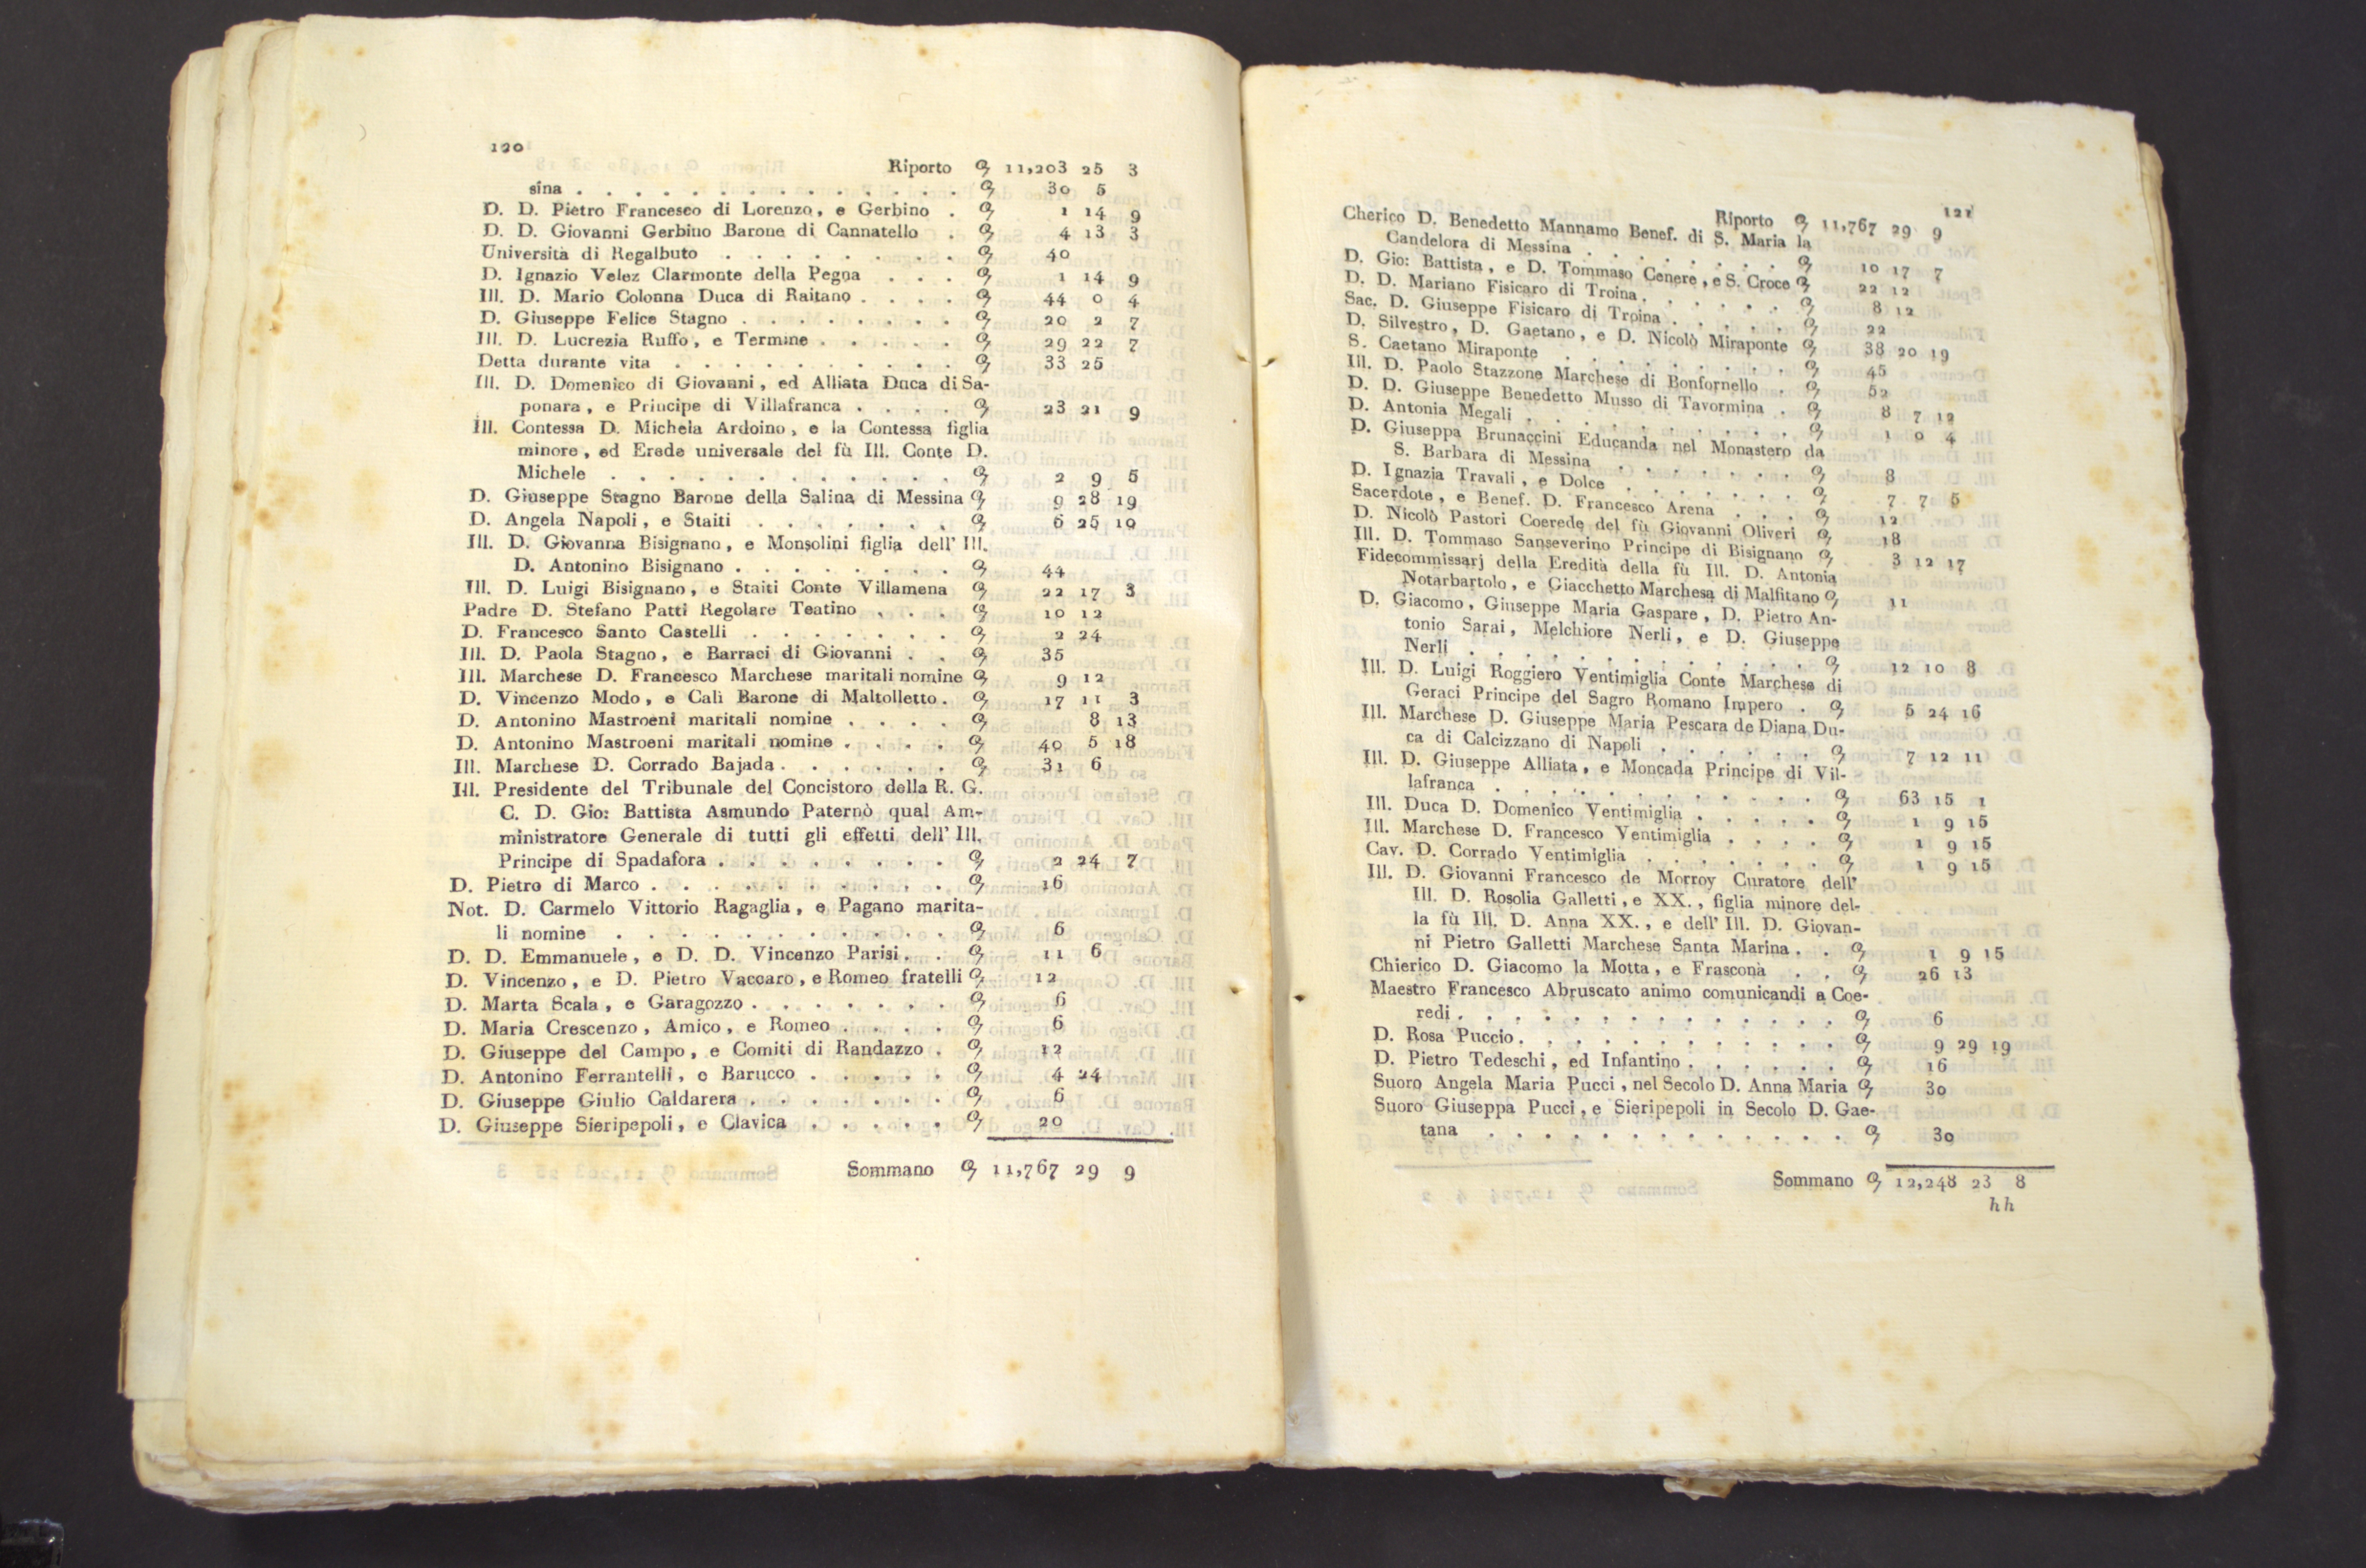 120
Riporto 11,203 25 3
sina . . . . . . . . . . . . . . 30 5
D. D. Pietro Francesco di Lorenzo, e Gerbino . 1 14 9
D. D. Giovanni Gerbino Barone di Cannatello . 4 13 3
Università di Regalbuto . . . . . . . . 40
D. Ignazio Velez Clarmonte della Pegna . . . 1 14 9
Ill. D. Mario Colonna Duca di Raitano . . . . 44 0 4
D. Giuseppe Felice Stagno . . . . . . . . 20 2 7
Ill. D. Lucrezia Ruffo, e Termine . . . . . 29 22 7
Detta durante vita . . . . . . . . . . 33 25
Ill. D. Domenico di Giovanni, ed Alliata Duca di Sa-
ponara, e Principe di Villafranca . . . . 23 21 9
Ill. Contessa D. Michela Ardoino, e la Contessa figlia
minore, ed Erede universale del fù Ill. Conte D.
Michele . . . . . . . . . . . . 2 9 5
D. Giuseppe Stagno Barone della Salina di Messina 9 28 19
D. Angela Napoli, e Staiti . . . . . . . 6 25 10
Ill. D. Giovanna Bisignano, e Monsolini figlia dell' Ill.
D. Antonino Bisignano . . . . . . . . 44
Ill. D. Luigi Bisignano, e Staiti Conte Villamena 22 17 3
Padre D. Stefano Patti Regolare Teatino . . . 10 12
D. Francesco Santo Castelli . . . . . . . 2 24
Ill. D. Paola Stagno, e Barraci di Giovanni . . 35
Ill. Marchese D. Francesco Marchese maritali nomine 9 12
D. Vincenzo Modo, e Calì Barone di Maltolletto . 17 11 3
D. Antonino Mastroeni maritali nomine . . . . 8 13
D. Antonino Mastroeni maritali nomine . . . . 40 5 18
Ill. Marchese D. Corrado Bajada . . . . . . 31 6
Ill. Presidente del Tribunale del Concistoro della R. G.
C. D. Gio: Battista Asmundo Paternò qual Am-
ministratore Generale di tutti gli effetti dell' Ill.
Principe di Spadafora . . . . . . . . 2 24 7
D. Pietro di Marco . . . . . . . . . . 16
Not. D. Carmelo Vittorio Ragaglia, e Pagano marita-
li nomine . . . . . . . . . . . 6
D. D. Emmanuele, e D. D. Vincenzo Parisi . . 11 6
D. Vincenzo, e D. Pietro Vaccaro, e Romeo fratelli 12
D. Marta Scala, e Garagozzo . . . . . . . 6
D. Maria Crescenzo, Amico, e Romeo . . . . 6
D. Giuseppe del Campo, e Comiti di Randazzo . 12
D. Antonino Ferrantelli, e Barucco . . . . . 4 24
D. Giuseppe Giulio Caldarera . . . . . . . 6
D. Giuseppe Sieripepoli, e Clavica . . . . . 20
Sommano 11,767 29 9
121
Riporto 11,767 29 9
Cherico D. Benedetto Mannamo Benef. di S. Maria la
Candelora di Messina . . . . . . . . 10 17 7
D. Gio: Battista, e D. Tommaso Cenere, e S. Croce 22 12
D. D. Mariano Fisicaro di Troina . . . . . . 8 12
Sac. D. Giuseppe Fisicaro di Troina . . . . . 22
D. Silvestro, D. Gaetano, e D. Nicolò Miraponte 38 20 19
S. Caetano Miraponte . . . . . . . . 45
Ill. D. Paolo Stazzone Marchese di Bonfornello . 52
D. D. Giuseppe Benedetto Musso di Tavormina . 8 7 12
D. Antonia Megali . . . . . . . . . . 1 0 4
D. Giuseppa Brunaccini Educanda nel Monastero da
S. Barbara di Messina . . . . . . . 8
D. Ignazia Travali, e Dolce . . . . . . . 7 7 5
Sacerdote, e Benef. D. Francesco Arena . . . 12
D. Nicolò Pastori Coerede del fù Giovanni Oliveri 18
Ill. D. Tommaso Sanseverino Principe di Bisignano 3 12 17
Fidecommissarj della Eredità della fù Ill. D. Antonia
Notarbartolo, e Giacchetto Marchesa di Malfitano 11
D. Giacomo, Giuseppe Maria Gaspare, D. Pietro An-
tonio Sarai, Melchiore Nerli, e D. Giuseppe
Nerli . . . . . . . . . . . . . 12 10 8
Ill. D. Luigi Roggiero Ventimiglia Conte Marchese di
Geraci Principe del Sagro Romano Impero . 5 24 16
Ill. Marchese D. Giuseppe Maria Pescara de Diana Du-
ca di Calcizzano di Napoli . . . . . . 7 12 11
Ill. D. Giuseppe Alliata, e Moncada Principe di Vil-
lafranca . . . . . . . . . . . . 63 15 1
Ill. Duca D. Domenico Ventimiglia . . . . . 1 9 15
Ill. Marchese D. Francesco Ventimiglia . . . . 1 9 15
Cav. D. Corrado Ventimiglia . . . . . . . 1 9 15
Ill. D. Giovanni Francesco de Morroy Curatore dell'
Ill. D. Rosolia Galletti, e XX., figlia minore del-
la fù Ill. D. Anna XX., e dell' Ill. D. Giovan-
ni Pietro Galletti Marchese Santa Marina . . 1 9 15
Chierico D. Giacomo la Motta, e Frasconà . . 26 13
Maestro Francesco Abruscato animo comunicandi a Coe-
redi . . . . . . . . . . . . . . 6
D. Rosa Puccio . . . . . . . . . . . . 9 29 19
D. Pietro Tedeschi, ed Infantino . . . . . . 16
Suoro Angela Maria Pucci, nel Secolo D. Anna Maria 30
Suoro Giuseppa Pucci, e Sieripepoli in Secolo D. Gae-
tana . . . . . . . . . . . . . 30
Sommano 12,248 23 8
hh